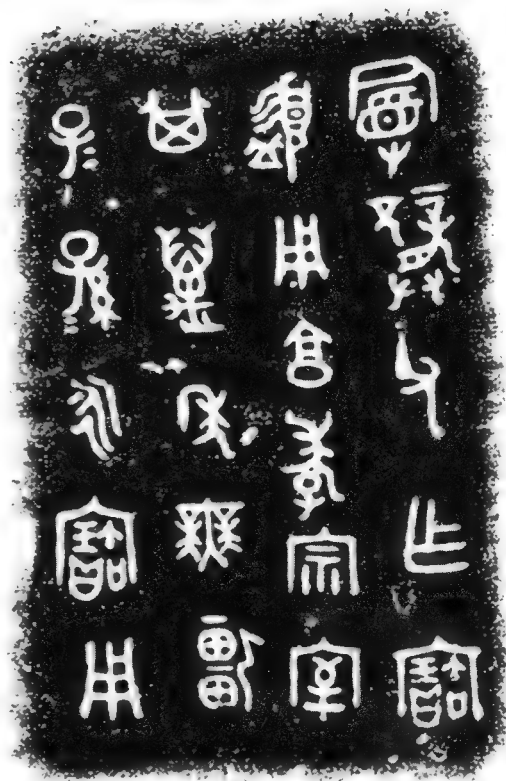 曼龏父乍寶
盨用亯孝宗室
其萬年無疆
子＝孫＝永寶用